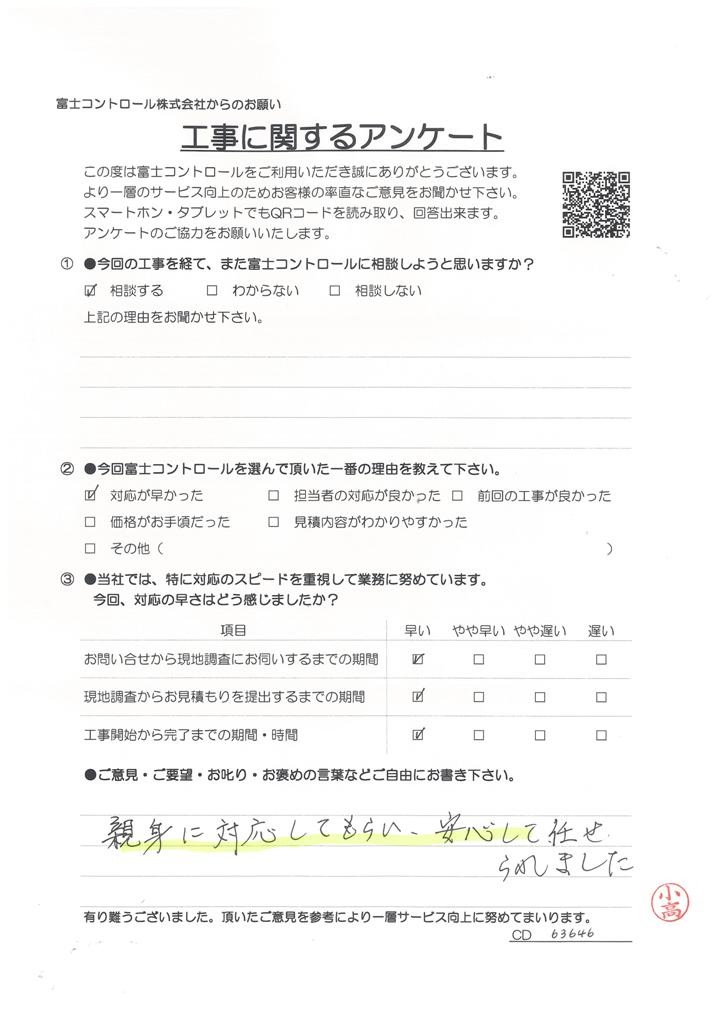 富士コントロール株式会社からのお願い
工事に関するアンケート
この度は富士コントロールをご利用いただき誠にありがとうございます。
より一層のサービス向上のためお客様の率直なご意見をお聞かせ下さい。
スマートホン・タブレットでもQRコードを読み取り、回答出来ます。
アンケートのご協力をお願いいたします。
① ●今回の工事を経て、また富士コントロールに相談しようと思いますか？
☑ 相談する □ わからない □ 相談しない
上記の理由をお聞かせ下さい。
② ●今回富士コントロールを選んで頂いた一番の理由を教えて下さい。
☑ 対応が早かった □ 担当者の対応が良かった □ 前回の工事が良かった
□ 価格がお手頃だった □ 見積内容がわかりやすかった
□ その他（ ）
③ ●当社では、特に対応のスピードを重視して業務に努めています。
今回、対応の早さはどう感じましたか？
項目 早い やや早い やや遅い 遅い
お問い合せから現地調査にお伺いするまでの期間 ☑ □ □ □
現地調査からお見積もりを提出するまでの期間 ☑ □ □ □
工事開始から完了までの期間・時間 ☑ □ □ □
●ご意見・ご要望・お叱り・お褒めの言葉などご自由にお書き下さい。
親身に対応してもらい、安心して任せ
られました
小高
有り難うございました。頂いたご意見を参考により一層サービス向上に努めてまいります。
CD 63646